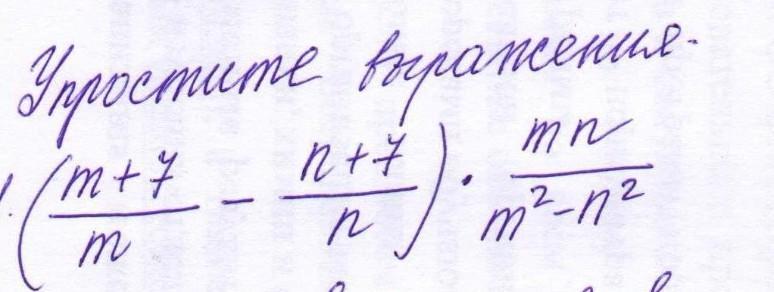 Упростите выражения.
1. ( (m+7)/m - (n+7)/n ) · mn/(m²-n²)